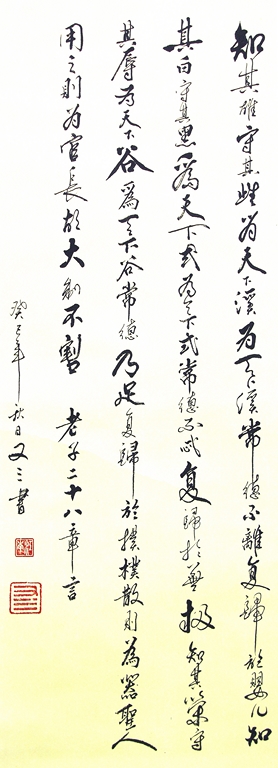 知其雄守其雌为天下溪为天下溪常德不離复歸於嬰儿知
其白守其黑爲天下式为天下式常德不忒复歸於無极知其荣守
其辱为天下谷爲天下谷常德乃足复歸於樸樸散則為器聖人
用之則为官長故大制不割 老子二十八章言
癸巳年秋日又三書